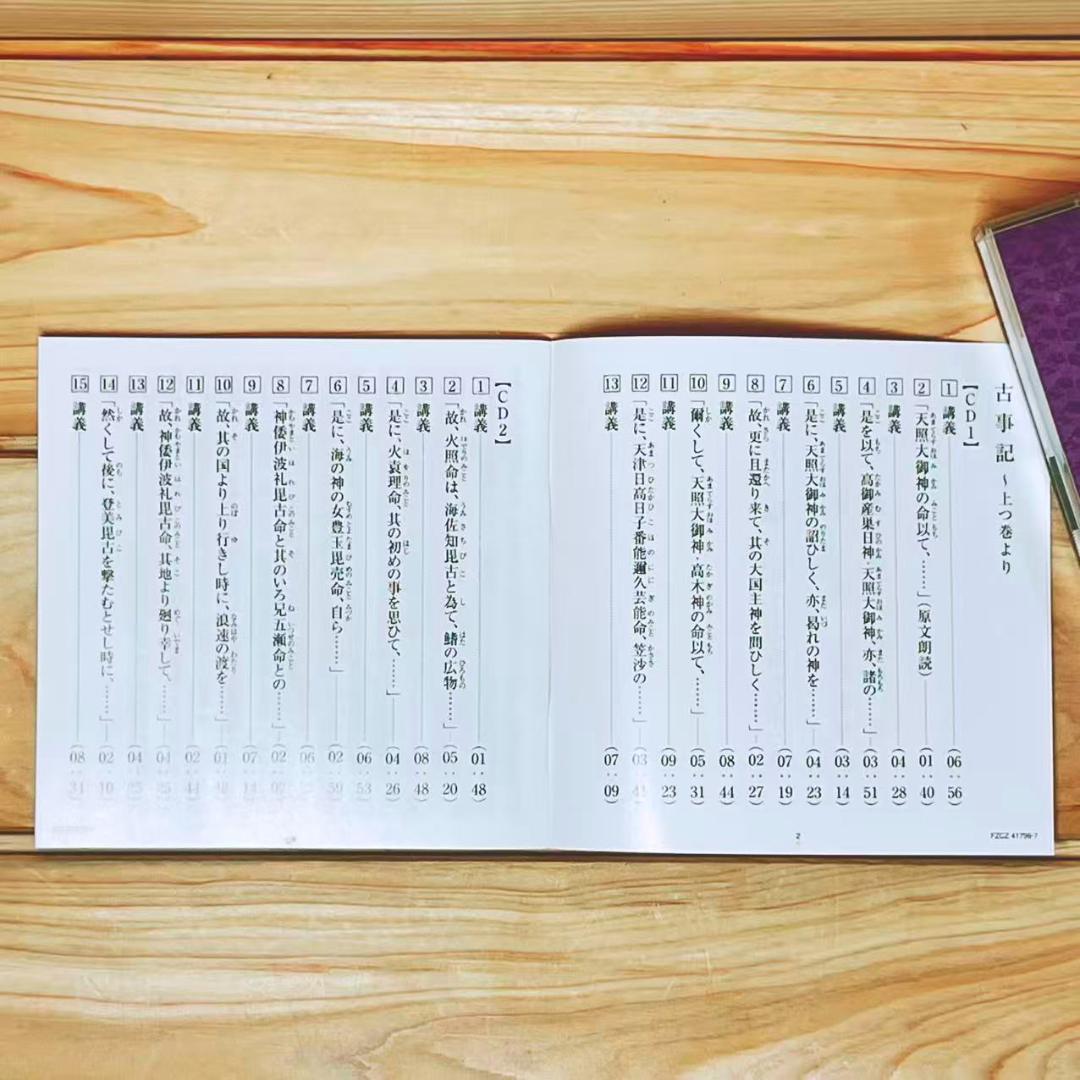 古事記 ~上つ巻より
【CD1】
1 講義 (06:56)
2 「天照大御神の命以て、……」(原文朗読) (01:40)
3 講義 (04:28)
4 「是を以て、高御産巣日神・天照大御神、亦、諸の……」 (03:51)
5 講義 (03:14)
6 「是に、天照大御神の詔ひしく、亦、曷れの神を……」 (04:23)
7 講義 (07:19)
8 「故、更に且還り来て、其の大国主神を問ひしく……」 (02:27)
9 講義 (08:44)
10 「爾くして、天照大御神・高木神の命以て、……」 (05:31)
11 講義 (09:23)
12 「是に、天津日高日子番能邇々芸能命、笠沙の……」 (03:41)
13 講義 (07:09)
2
FZCZ 41796-7
【CD2】
1 講義 (01:48)
2 「故、火照命は、海佐知毘古と為て、鰭の広物……」 (05:20)
3 講義 (08:48)
4 「是に、火遠理命、其の初めの事を思ひて、……」 (04:26)
5 講義 (06:53)
6 「是に、海の神の女豊玉毘売命、自ら……」 (02:59)
7 講義
8 「神倭伊波礼毘古命と其のいろ兄五瀬命との……」
9 講義 (07:14)
10 「故、其の国より上り行きし時に、浪速の渡を……」
11 講義 (02:44)
12 「故、神倭伊波礼毘古命、其地より廻り幸して、……」
13 講義 (04:25)
14 「然くして後に、登美毘古を撃たむとせし時に、……」 (02:10)
15 講義 (08:31)